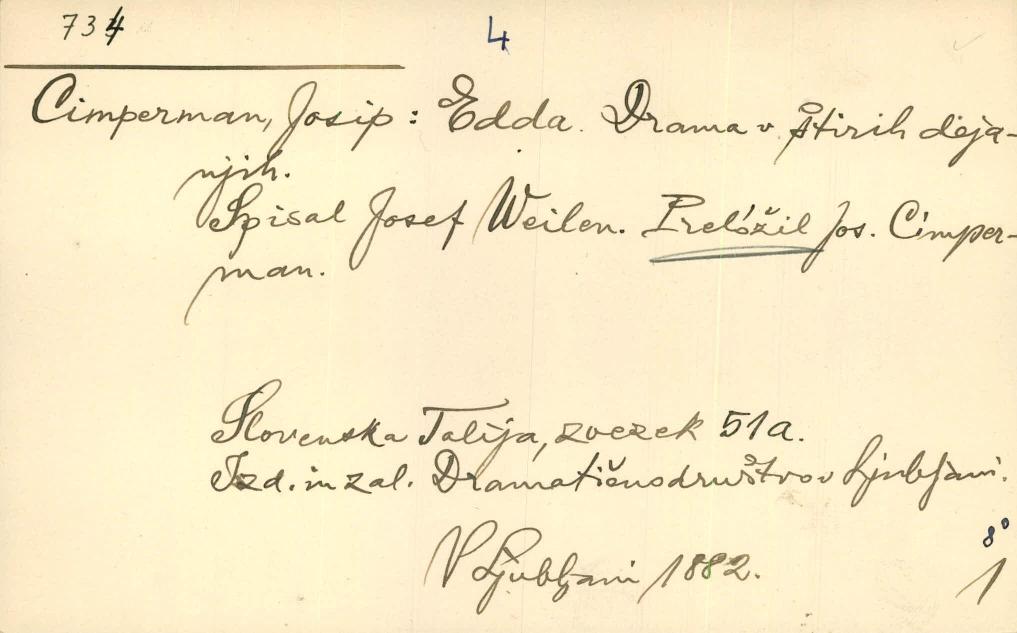 734
4
Cimperman, Josip: Edda. Drama v štirih deja-
njih.
Spisal Josef Weilen. Preložil Jos. Cimper-
man.
Slovenska Talija, zvezek 51a.
Izd. in zal. Dramatično društvo v Ljubljani.
8°
V Ljubljani 1882.
1